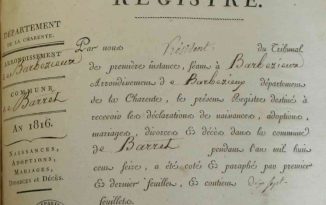 REGISTRE.
DÉPARTEMENT
DE LA CHARENTE.
ARRONDISSEMENT
de Barbezieux
COMMUNE
de Barret
AN 1816.
NAISSANCES,
ADOPTIONS,
MARIAGES,
DIVORCES et DÉCÈS.
Par nous Président du Tribunal
de première instance, séant à Barbezieux
Arrondissement de Barbezieux département
de la Charente, le présent Registre destiné à
recevoir les déclarations de naissances, adoptions
mariages, divorces & décès dans la commune
de Barret pendant l'an mil huit
cent seize, a été coté & paraphé par premier
& dernier feuillet, & contient dix sept
feuillets.